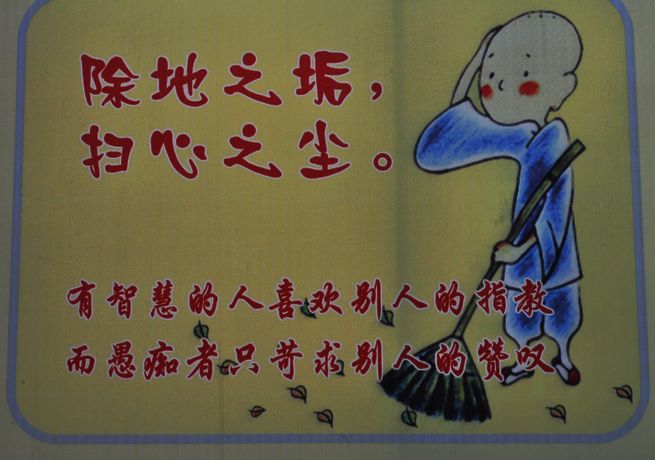 除地之垢，
扫心之尘。
有智慧的人喜欢别人的指教
而愚痴者只苛求别人的赞叹